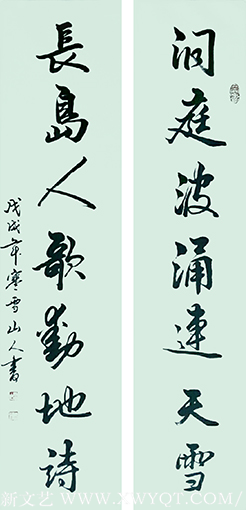 洞庭波涌連天雪
長島人歌動地詩
戊戌年寒雪山人書
新文艺 WWW.XWYQT.COM/